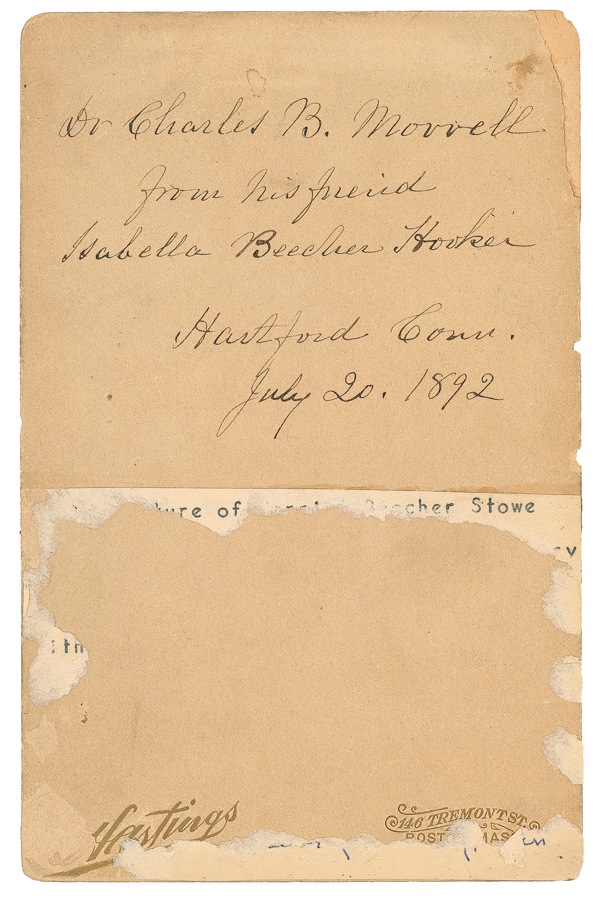 Dr Charles B. Morrell
from his friend
Isabella Beecher Hooker
Hartford Conn.
July 20. 1892
ture of Beecher Stowe
Hastings
146 TREMONT ST.